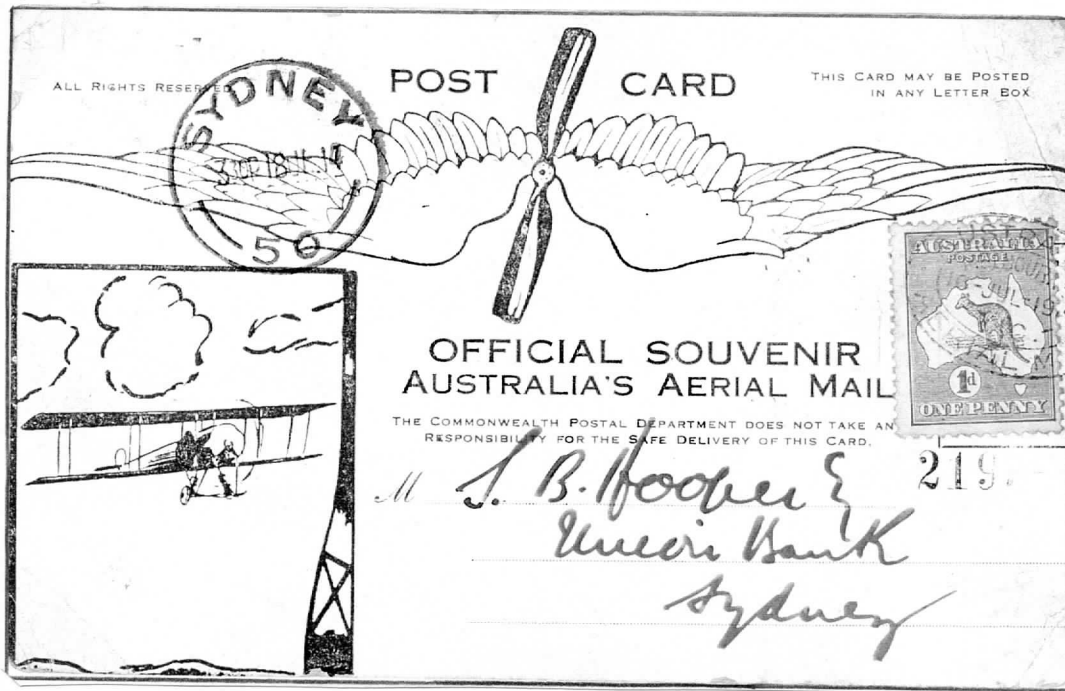 POST CARD
ALL RIGHTS RESERVED
THIS CARD MAY BE POSTED
IN ANY LETTER BOX
SYDNEY
50
AUSTRALIA
POSTAGE
1d
ONE PENNY
OFFICIAL SOUVENIR
AUSTRALIA'S AERIAL MAIL
THE COMMONWEALTH POSTAL DEPARTMENT DOES NOT TAKE AN
RESPONSIBILITY FOR THE SAFE DELIVERY OF THIS CARD.
219
M S. B. Hooper E
Union Bank
Sydney